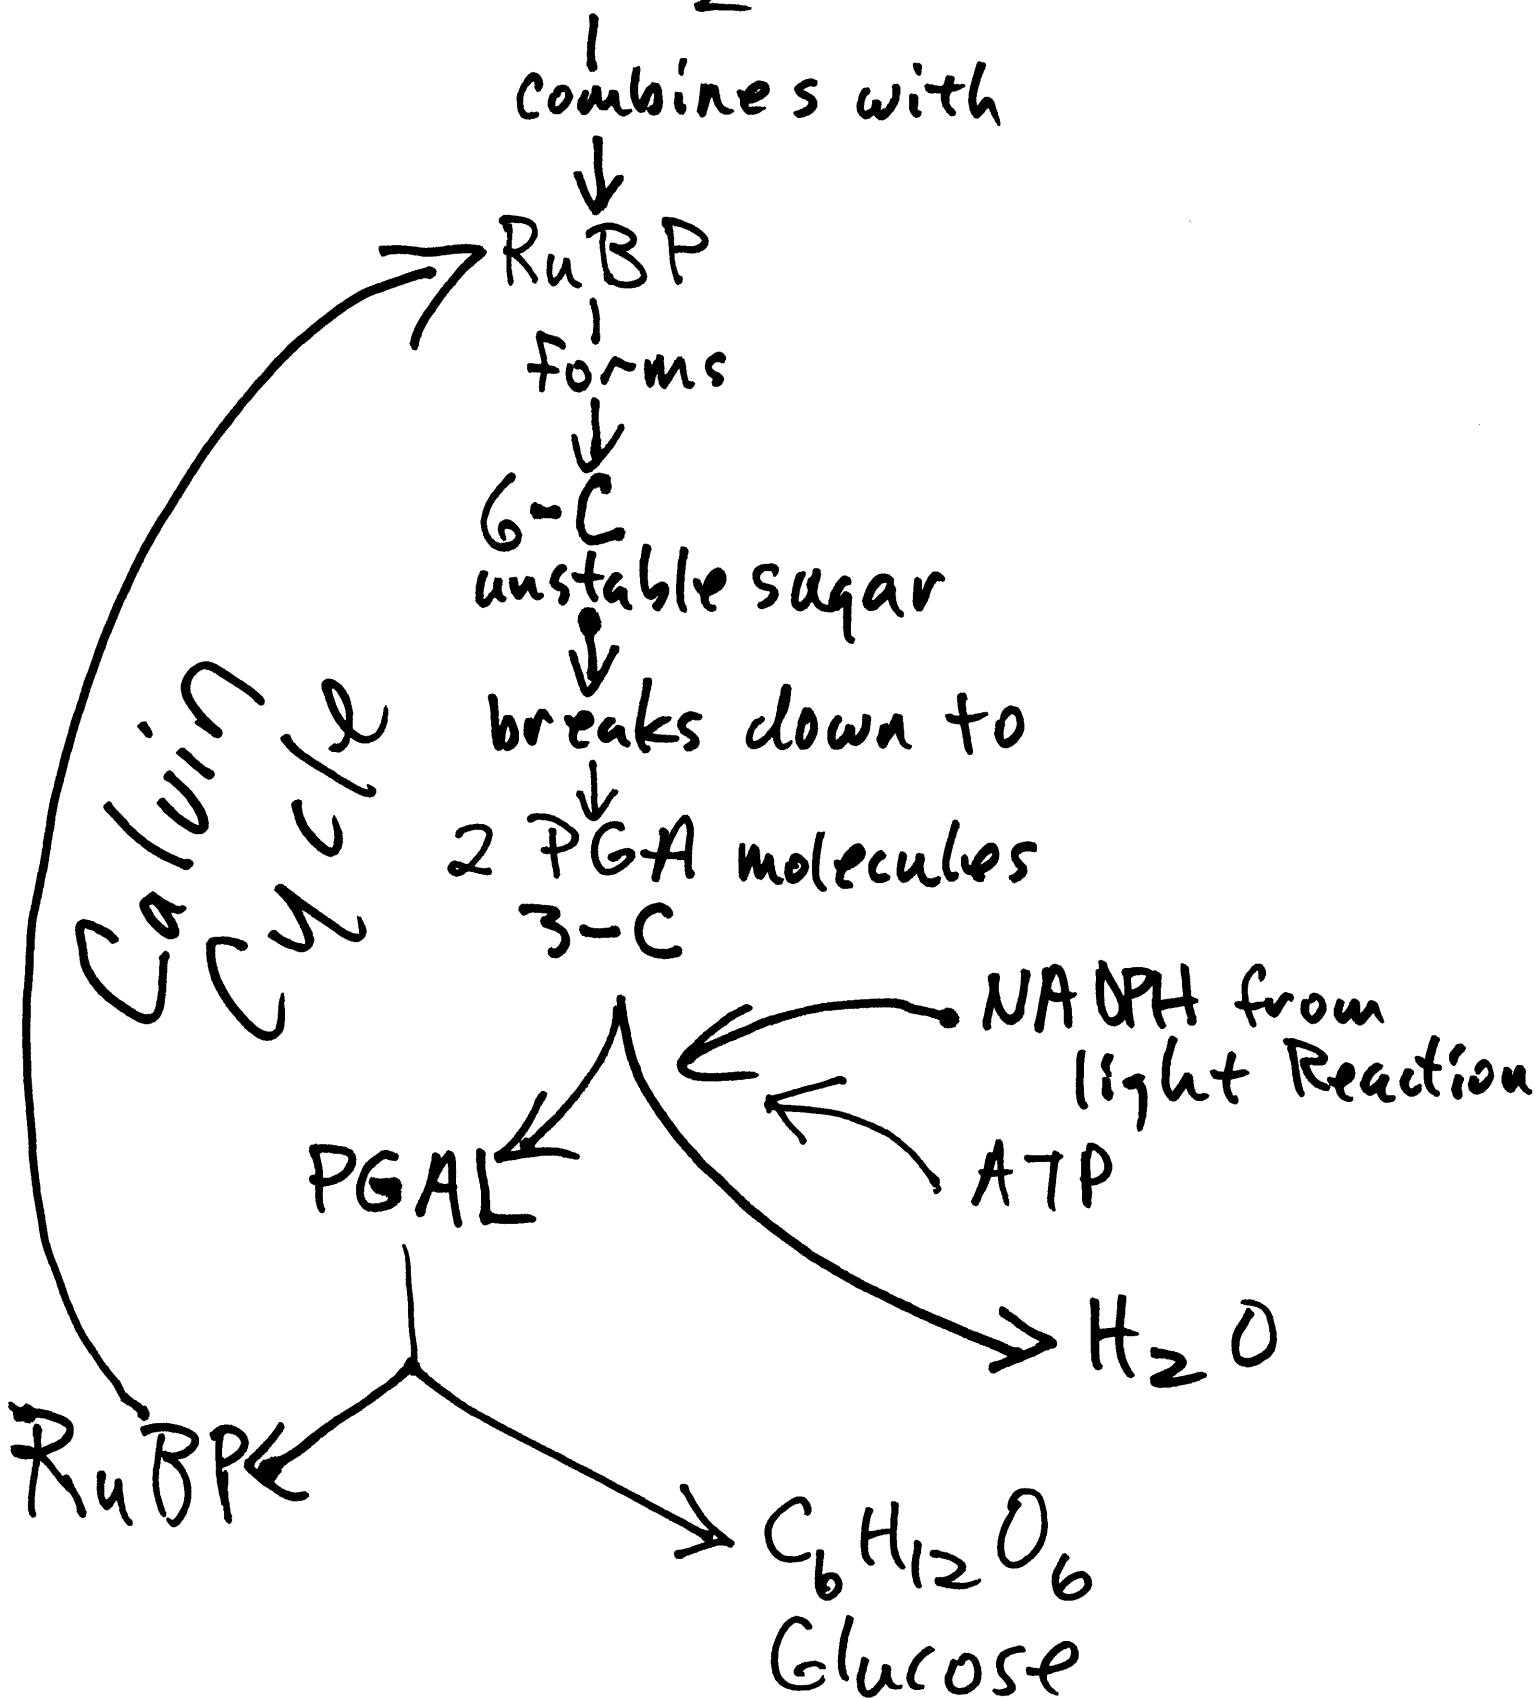 combines with
RuBP
forms
6-C
unstable sugar
breaks down to
2 PGA molecules
3-C
Calvin
Cycle
NADPH from
light Reaction
ATP
PGAL
H₂O
RuBP
C₆H₁₂O₆
Glucose